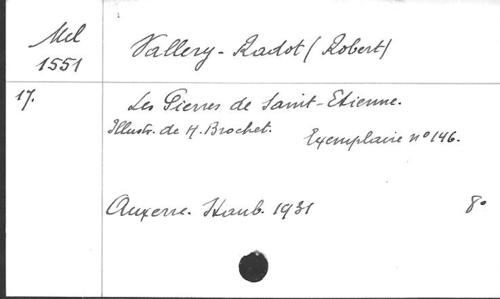 Mel
1551
Vallery-Radot (Robert)
17.
Les Pierres de Saint-Etienne.
Illustr. de H. Brochet.
Exemplaire n° 146.
Auxerre. Staub. 1931
8°